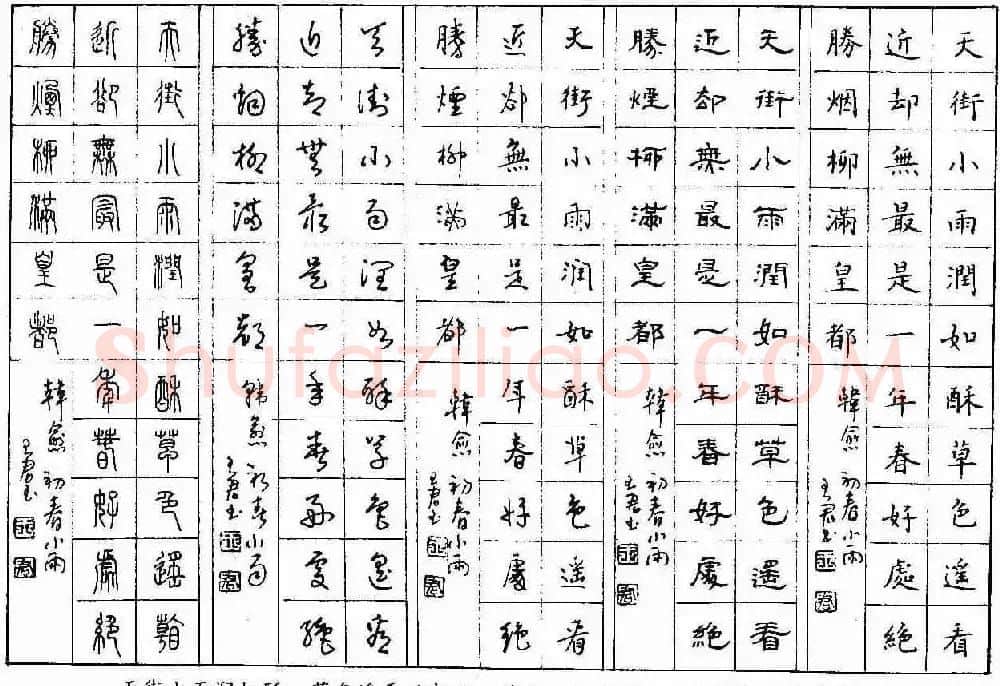 天街小雨潤如酥草色遥看
近却無最是一年春好處絕
勝烟柳滿皇都
韓愈初春小雨
王君書
天街小雨潤如酥草色遥看
近却無最是一年春好處絕
勝煙柳滿皇都
韓愈初春小雨
王君書
天街小雨润如酥草色遥看
近卻無最是一年春好處絕
勝煙柳滿皇都
韓愈初春小雨
王君書
天街小雨潤如酥草色遥看
近却無最是一年春好處絕
勝烟柳滿皇都
韓愈初春小雨
王君書
天街小雨潤如酥草色遙看
近卻無最是一年春好處絕
勝煙柳滿皇都
韓愈初春小雨
王君書
shufaziliao.COM